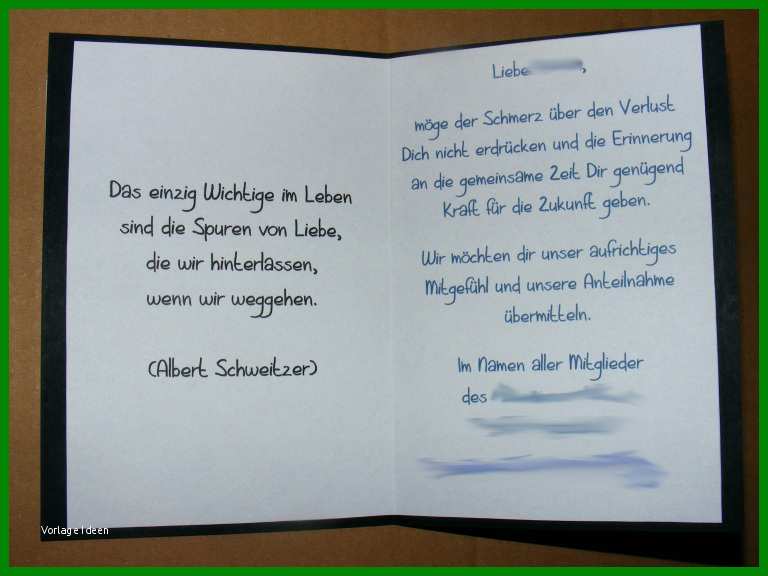 Das einzig Wichtige im Leben
sind die Spuren von Liebe,
die wir hinterlassen,
wenn wir weggehen.
(Albert Schweitzer)
Liebe ,
möge der Schmerz über den Verlust
Dich nicht erdrücken und die Erinnerung
an die gemeinsame Zeit Dir genügend
Kraft für die Zukunft geben.
Wir möchten dir unser aufrichtiges
Mitgefühl und unsere Anteilnahme
übermitteln.
Im Namen aller Mitglieder
des
VorlageIdeen